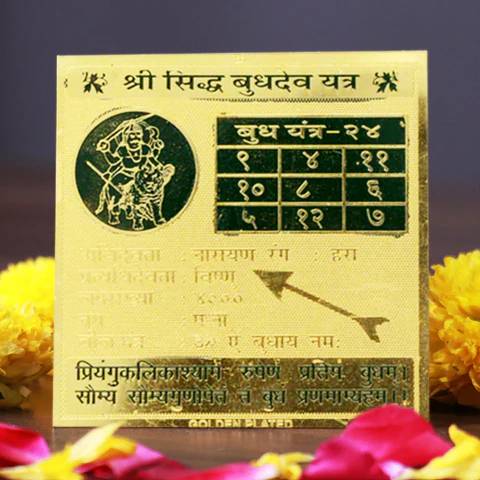 श्री सिद्ध बुधदेव यत्र
बुध यंत्र-२४
९ ४ ११
१० ८ ६
५ १२ ७
नारायण रंग : हरा
: विष्णु
: ४०००
: पन्ना
बुधाय नमः
प्रियंगुकलिकाश्यामं रुपेण प्रतिमं बुधम्।
सौम्य सौम्यगुणोपेतं तं बुधं प्रणमाम्यहम्।।
GOLDEN PLATED